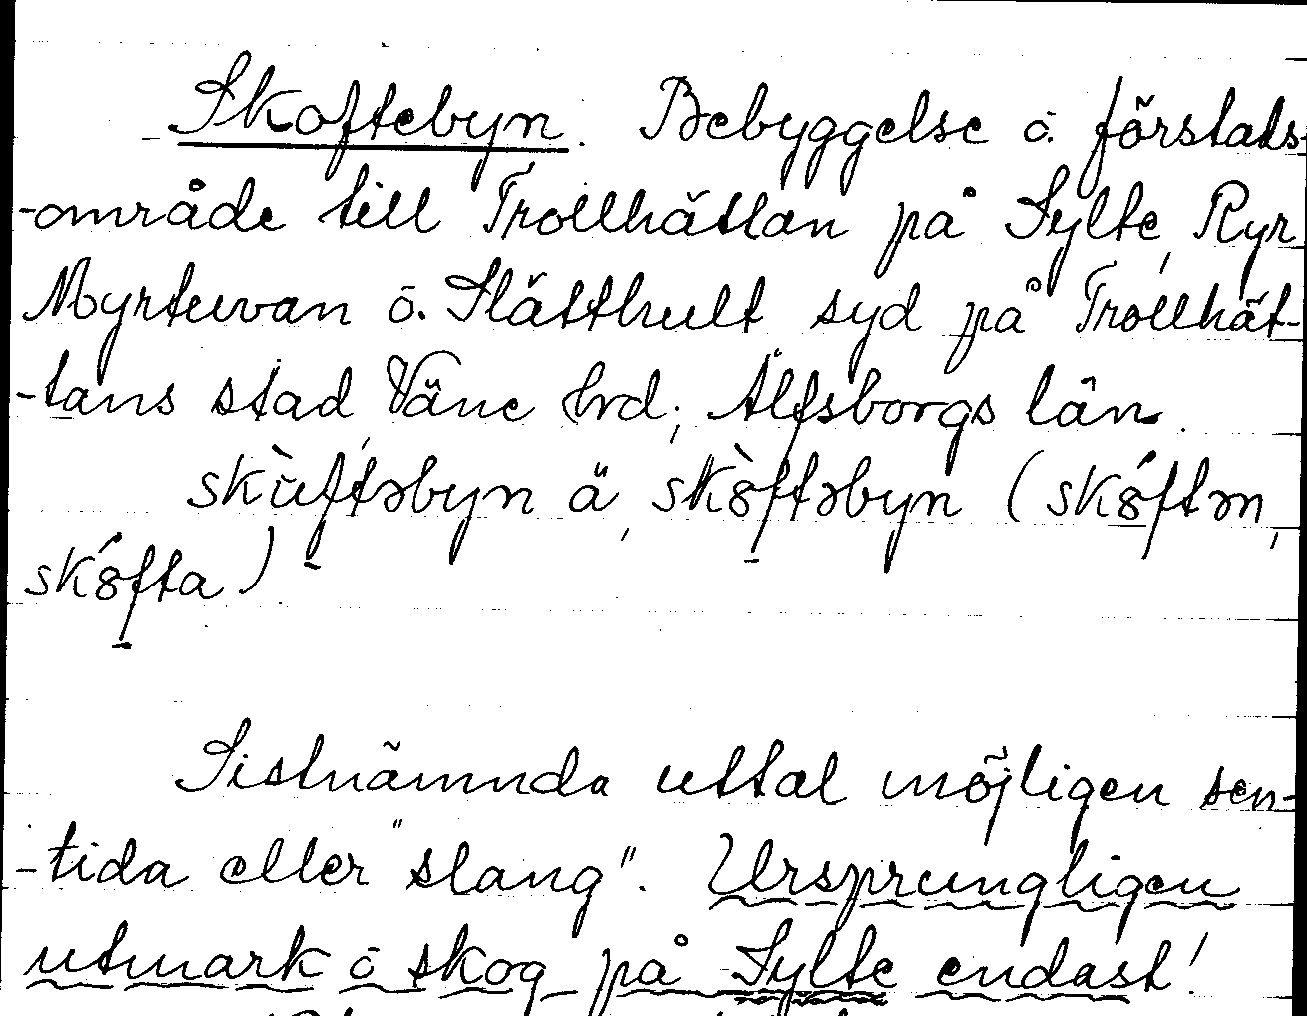 Skoftebyn. Bebyggelse o. förstads-
-område till Trollhättan på Sylte, Ryr
Myrtuvan o. Slätthult syd på Trollhät-
-tans stad Väne hrd, Älfsborgs län.
skùftəbyn ä, skòftəbyn (skóftən,
skófta)
Sistnämnda uttal möjligen sen-
-tida eller "slang". Ursprungligen
utmark o skog på Sylte endast!